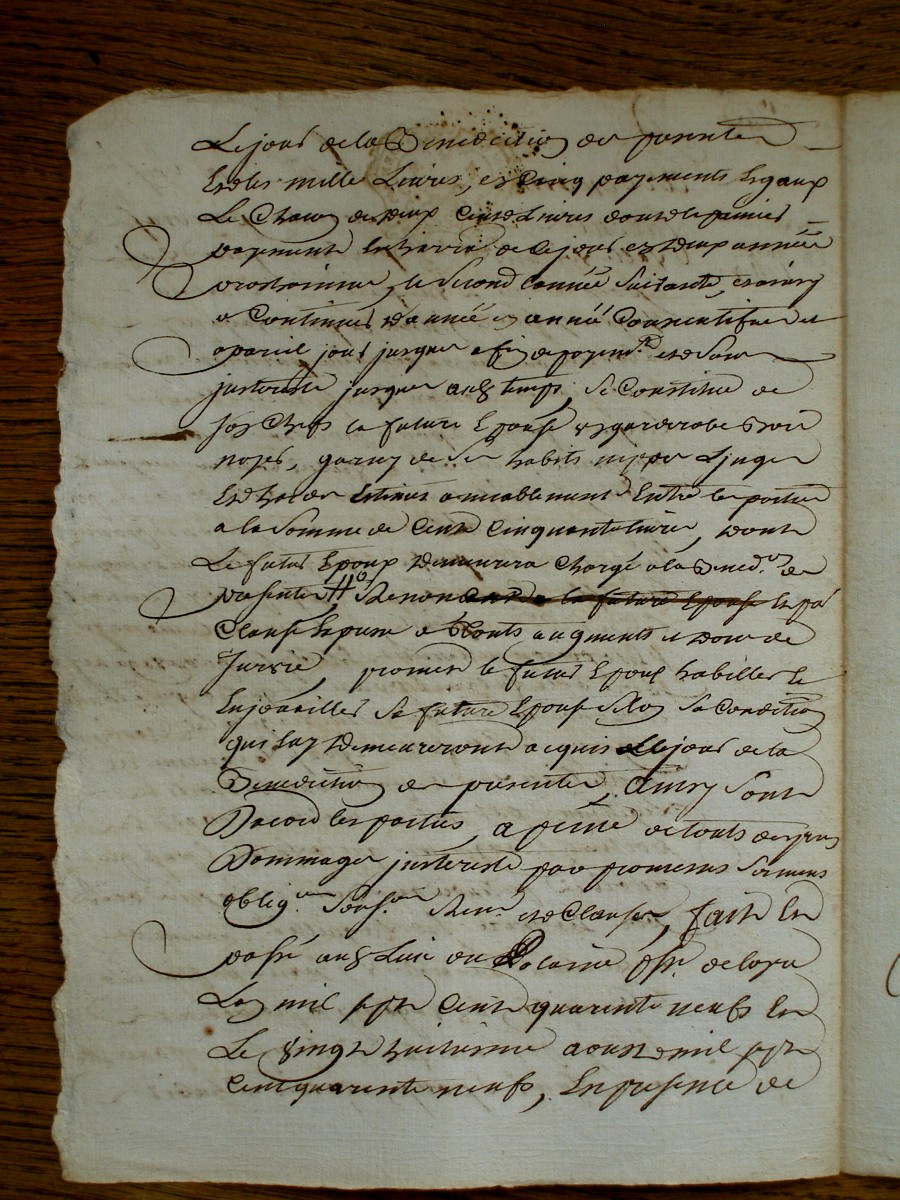 Le jour de la Benediction des presentes
Et les mille Livres, en Cinq payements Egaux
Le Chacun de deux Cents Livres dont le premier
payement de ce jour en deux années
prochaines, le second l'année suivante, et ainsy
a Continuer d'année en année Consecutifves et
a pareil jour jusques a fin de payem.t et de
jusques aud. temps, Se Constitue de
Son Chef la future Epouse un garderobe bois
noyer, garny de ses habits nippes Linges
Et hardes Estimes amiablement Entre les parties
a la Somme de Cent Cinquante Livres, dont
Le futur Epoux demeurera Chargé a la Bened.on des
presentes, Renonceant la future Epouse
Clause a touts augments et de
Survie, promet le futur Epoux habiller et
Enjoailler Sa future Epouse Selon Sa Condition
qui Luy demeureront acquis le jour de la
Benediction des presentes, Ainsy Sont
D'acord les parties, a peine de touts despens
Dommages par promesses Sermens
oblig.ons Sousm.ons Ren.ons et Clauses, fait Et
passé aud. Lieu du
L'an mil sept Cents quarente neufs Et
Le vingt huitieme aoust mil sept
Cent quarente neufs, En presence de